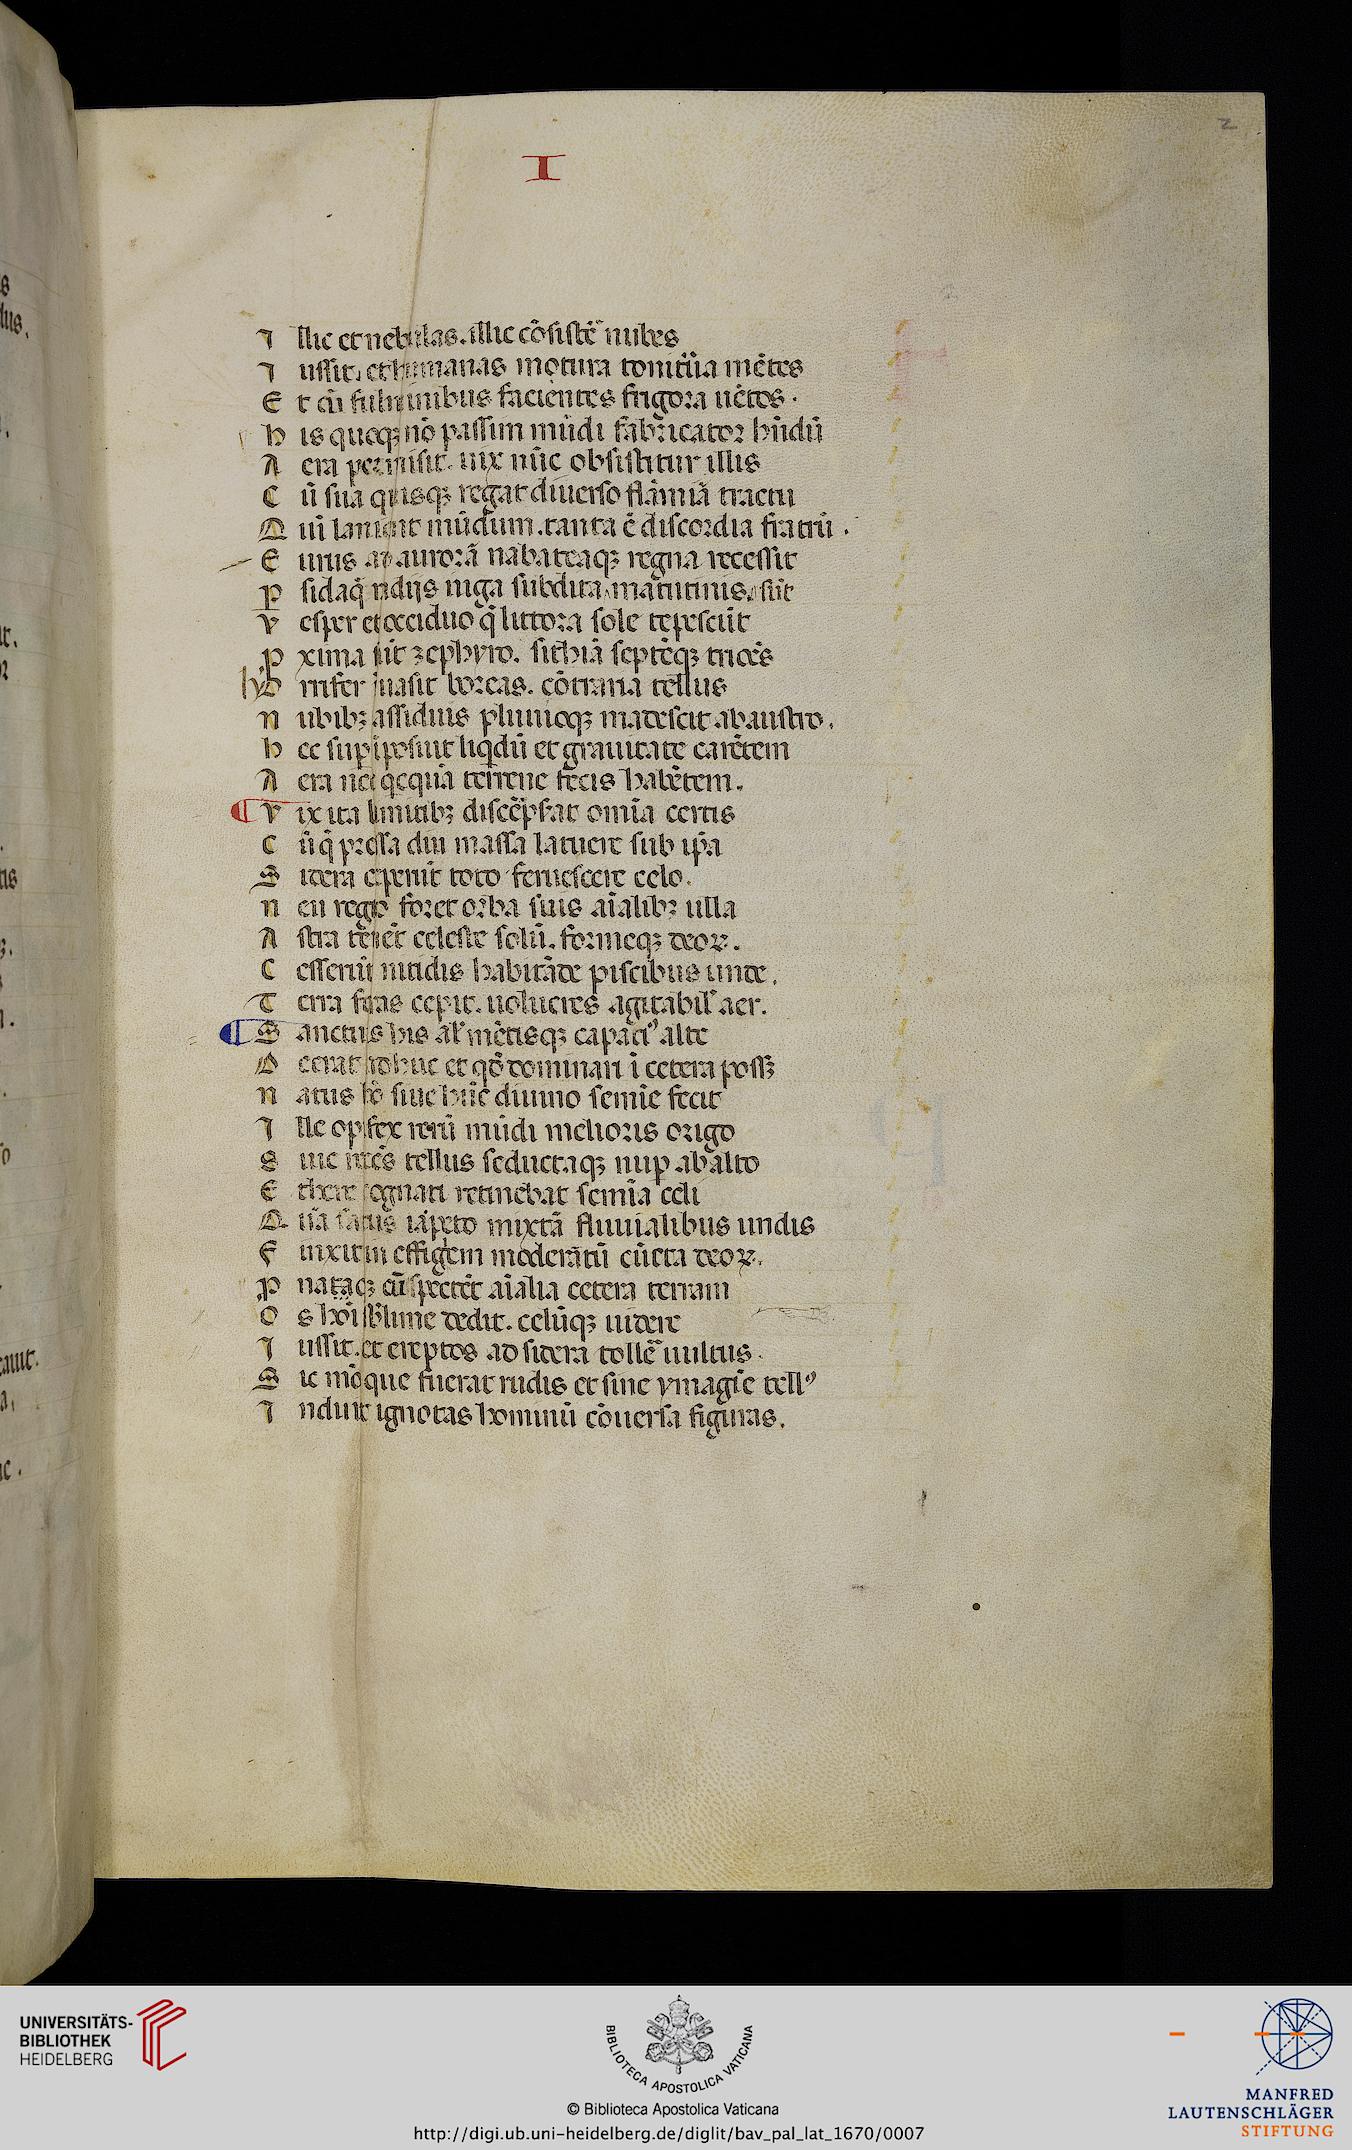 2
I
I llic et nebulas. illic cōsistē nubes
I ussit. et humanas motura tonitrua mētes
E t cū fulminibus facientes frigora uētos.
h is quoqꝫ nō passim mūdi fabricator hn̄dū
A era permisit. uix nūc obsistitur illis
C ū sua quisqꝫ regat diuerso flāmiā tractu
Q ui laniēt mūdum. tanta ē discordia fratrū.
E urus ad aurorā nabateaqꝫ regna recessit
P sidaq̄ radijs iuga subdita matutinis. sūt
V esper et occiduo q̄ littora sole tepescūt
P xima sūt zephyro. sithiā septēqꝫ triōēs
hO rrifer īuasit boreas. cōtraria tellus
N ubibꝫ assiduis pluuioqꝫ madescit ab austro.
h ec sup īposuit liqdū et grauitate carētem
A era nec qcquā terrene fecis habētem.
V ix ita limitibꝫ discēpsat omīa certis
C ū q̄ pressa diu massa latuere sub ipā
S idera ceperūt toto feruescere celo.
N eu regio foret orba suis aīalibꝫ ulla
A stra tenēt celeste solū. formeqꝫ deoꝝ.
C esserūt nitidis habitāde piscibus unde.
T erra feras cepit. uolucres agitabil aer.
S anctius his aīal mētisqꝫ capaciꝰ alte
D eerat adhuc et qd̄ dominari ī cetera possꝫ
N atus hō siue hūc diuino semīe fecit
I lle opifex rerū mūdi melioris origo
S iue recēs tellus seductaqꝫ nup ab alto
E there cognati retinebat semīa celi
Q uā satus iapeto mixtā fluuialibus undis
F inxit in effigiem moderātū cūcta deoꝝ.
P nataqꝫ cū spectēt aīalia cetera terram
O s hoī sblime dedit. celūqꝫ uidere
I ussit. et erectos ad sidera tollē uultus.
S ic mō que fuerat rudis et sine ymagīe tellꝰ
I nduit ignotas hominū cōuersa figuras.
UNIVERSITÄTS-
BIBLIOTHEK
HEIDELBERG
BIBLIOTECA APOSTOLICA VATICANA
© Biblioteca Apostolica Vaticana
http://digi.ub.uni-heidelberg.de/diglit/bav_pal_lat_1670/0007
MANFRED
LAUTENSCHLÄGER
STIFTUNG